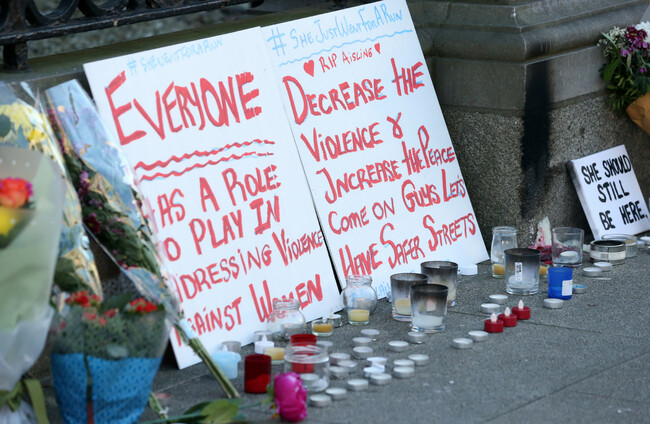 #SHEWENTFORARUN
EVERYONE
HAS A ROLE
TO PLAY IN
ADDRESSING VIOLENCE
AGAINST WOMEN
#SHEJUSTWENTFORARUN
♥ RIP AISLING ♥
DECREASE THE
VIOLENCE &
INCREASE THE PEACE
COME ON GUYS LET'S
HAVE SAFER STREETS
SHE SHOULD
STILL
BE HERE.